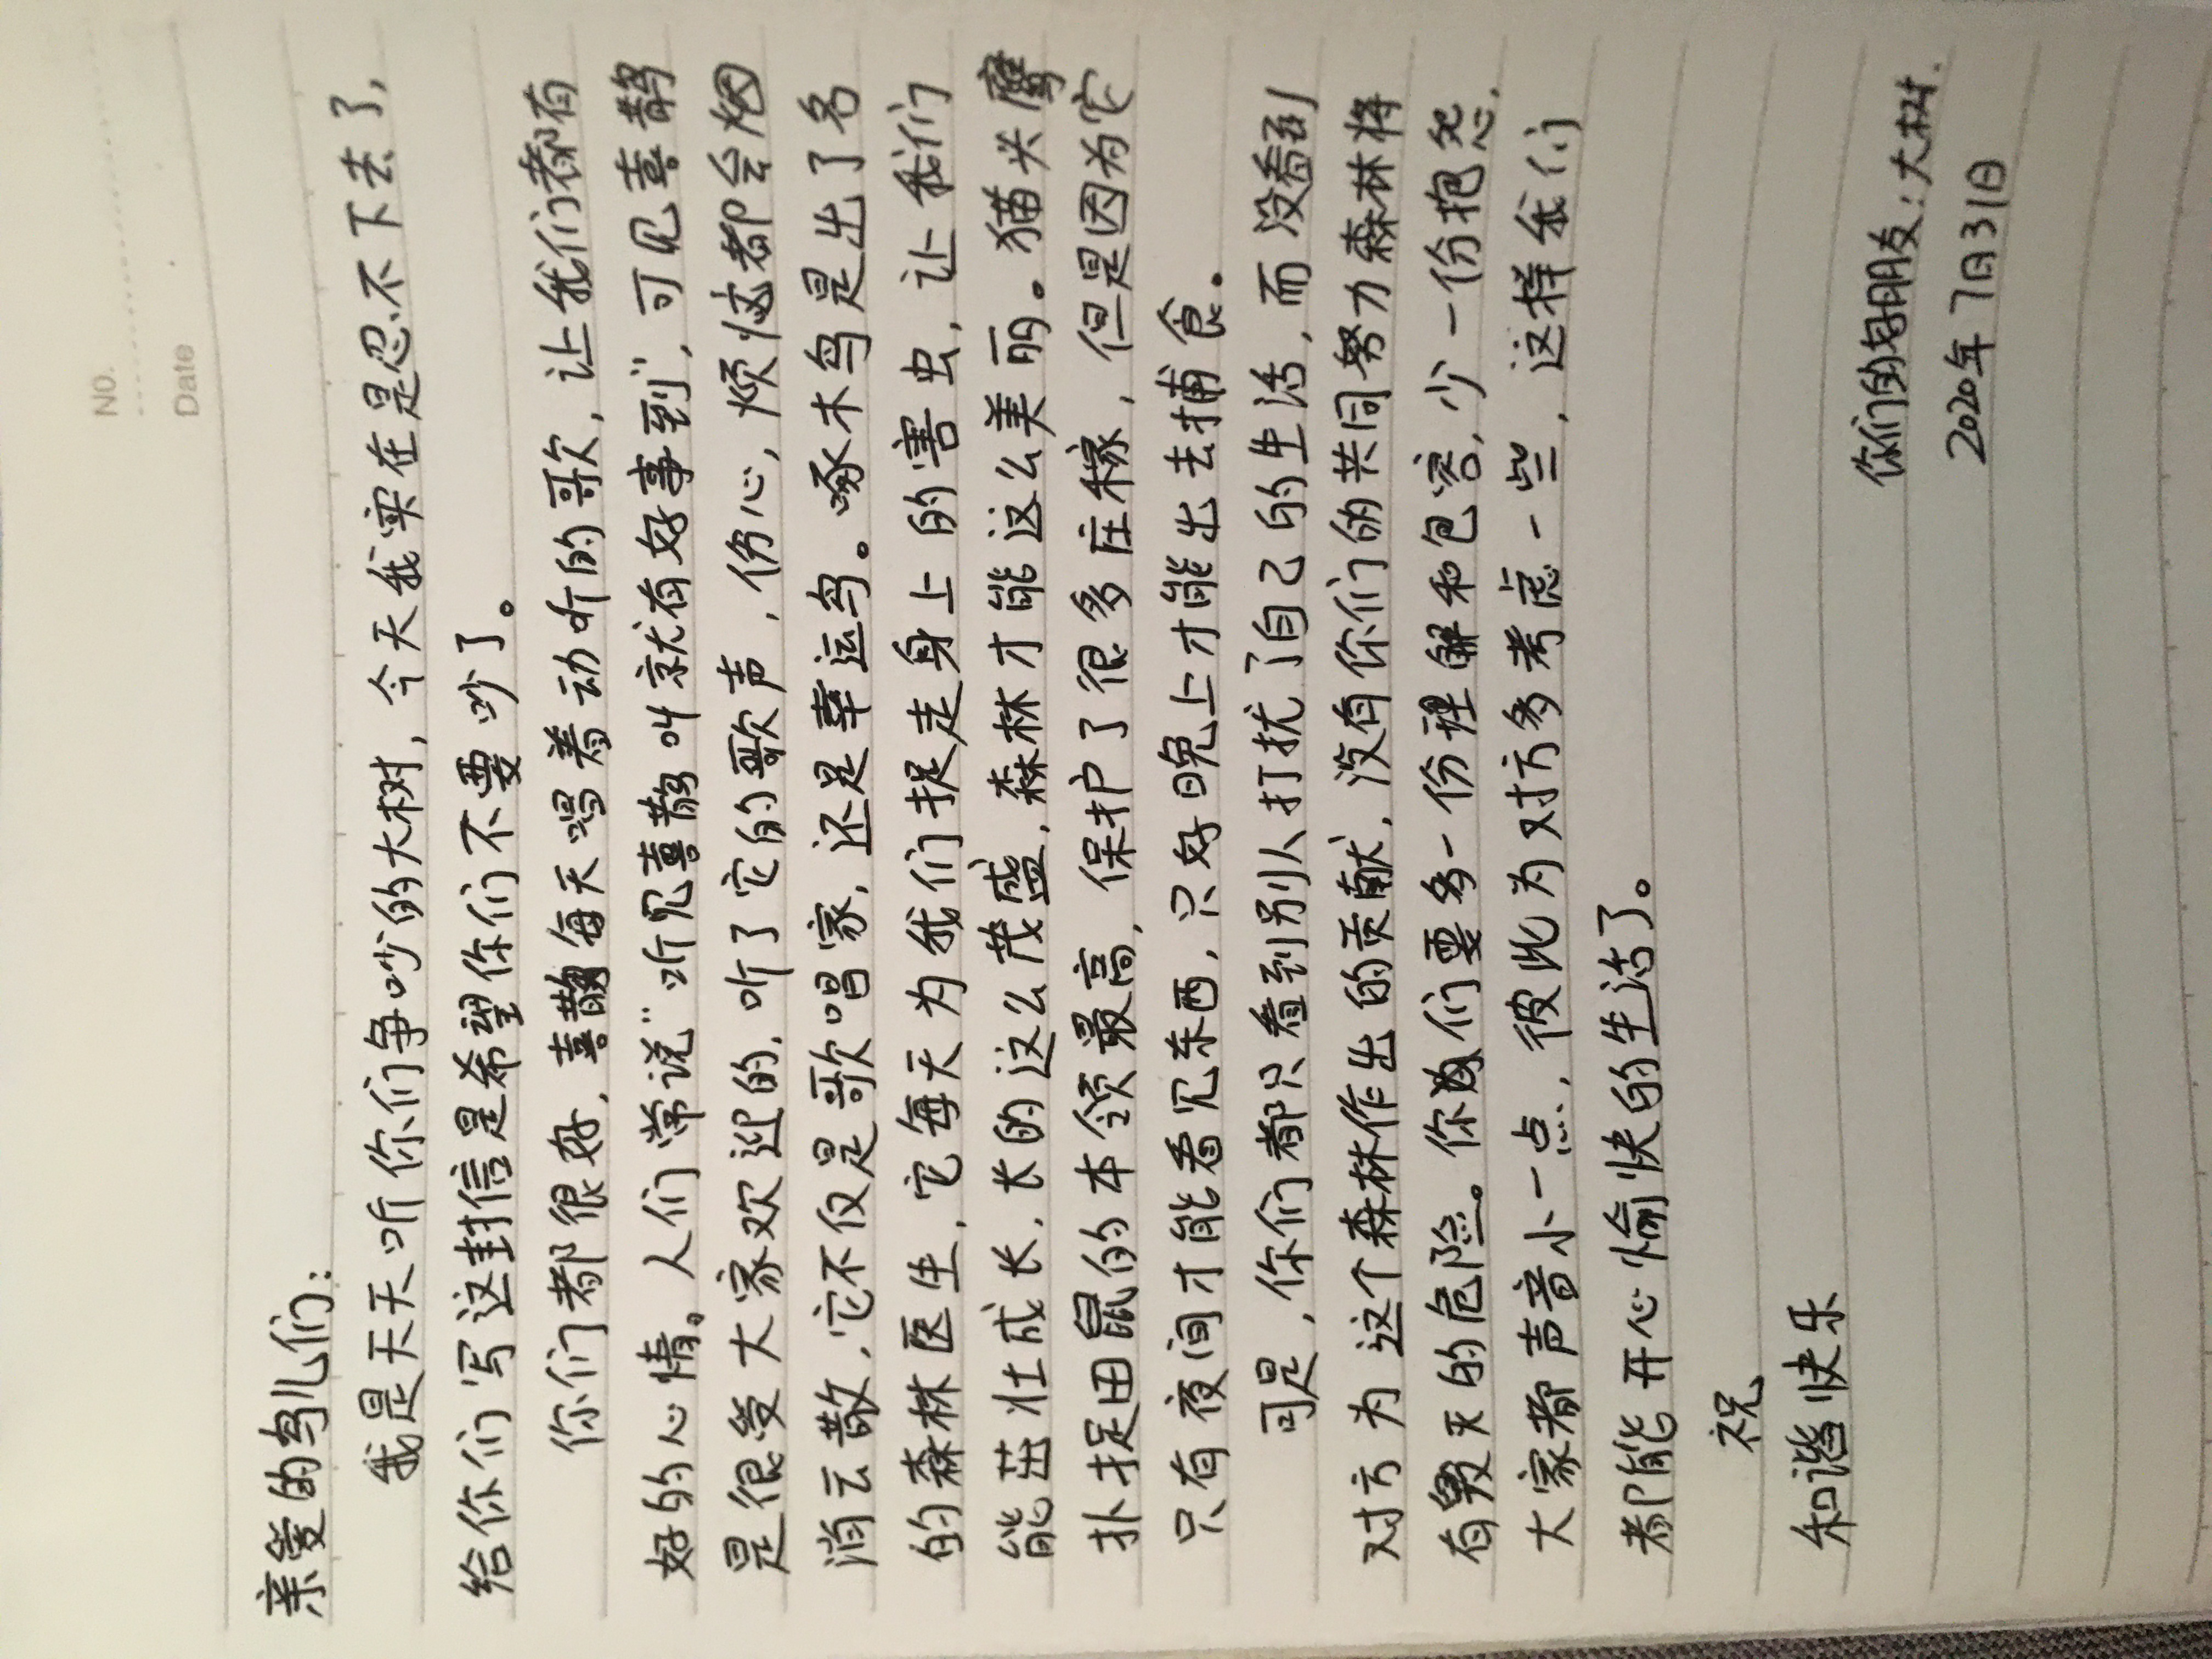 No.
Date
亲爱的鸟儿们:
我是天天听你们争吵的大树,今天我实在是忍不下去了,
给你们写这封信是希望你们不要吵了。
你们都很好,喜鹊每天唱着动听的歌,让我们都有
好的心情。人们常说“听见喜鹊叫就有好事到”,可见喜鹊
是很受大家欢迎的,听了它的歌声,伤心,烦恼都会烟
消云散,它不仅是歌唱家,还是幸运鸟。啄木鸟是出了名
的森林医生,它每天为我们捉走身上的害虫,让我们
能茁壮成长,长的这么茂盛,森林才能这么美丽。猫头鹰
扑捉田鼠的本领最高,保护了很多庄稼,但是因为它
只有夜间才能看见东西,只好晚上才能出去捕食。
可是,你们都只看到别人打扰了自己的生活,而没看到
对方为这个森林作出的贡献,没有你们的共同努力森林将
有毁灭的危险。你们要多一份理解和包容,少一份抱怨,
大家都声音小一点,彼此为对方多考虑一些,这样我们
都能开心愉快的生活了。
祝
和谐快乐
你们的好朋友:大树.
2020年7月31日